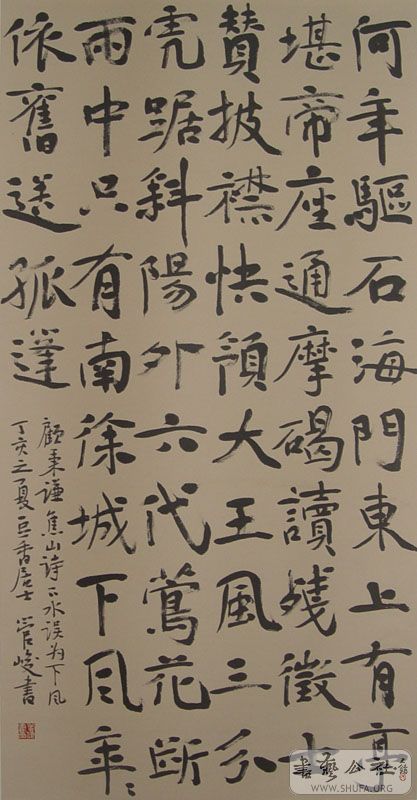 何年驅石海門東上有真
堪帝座通摩碣讀殘徵士
贊披襟快領大王風三分
虎踞斜陽外六代鶯花斷
雨中只有南徐城下風年〻
依舊送孤篷
顧秉谦焦山诗下水误为下风
丁亥之夏巨香居士 管峻書
書藝公社
WWW.SHUFA.ORG